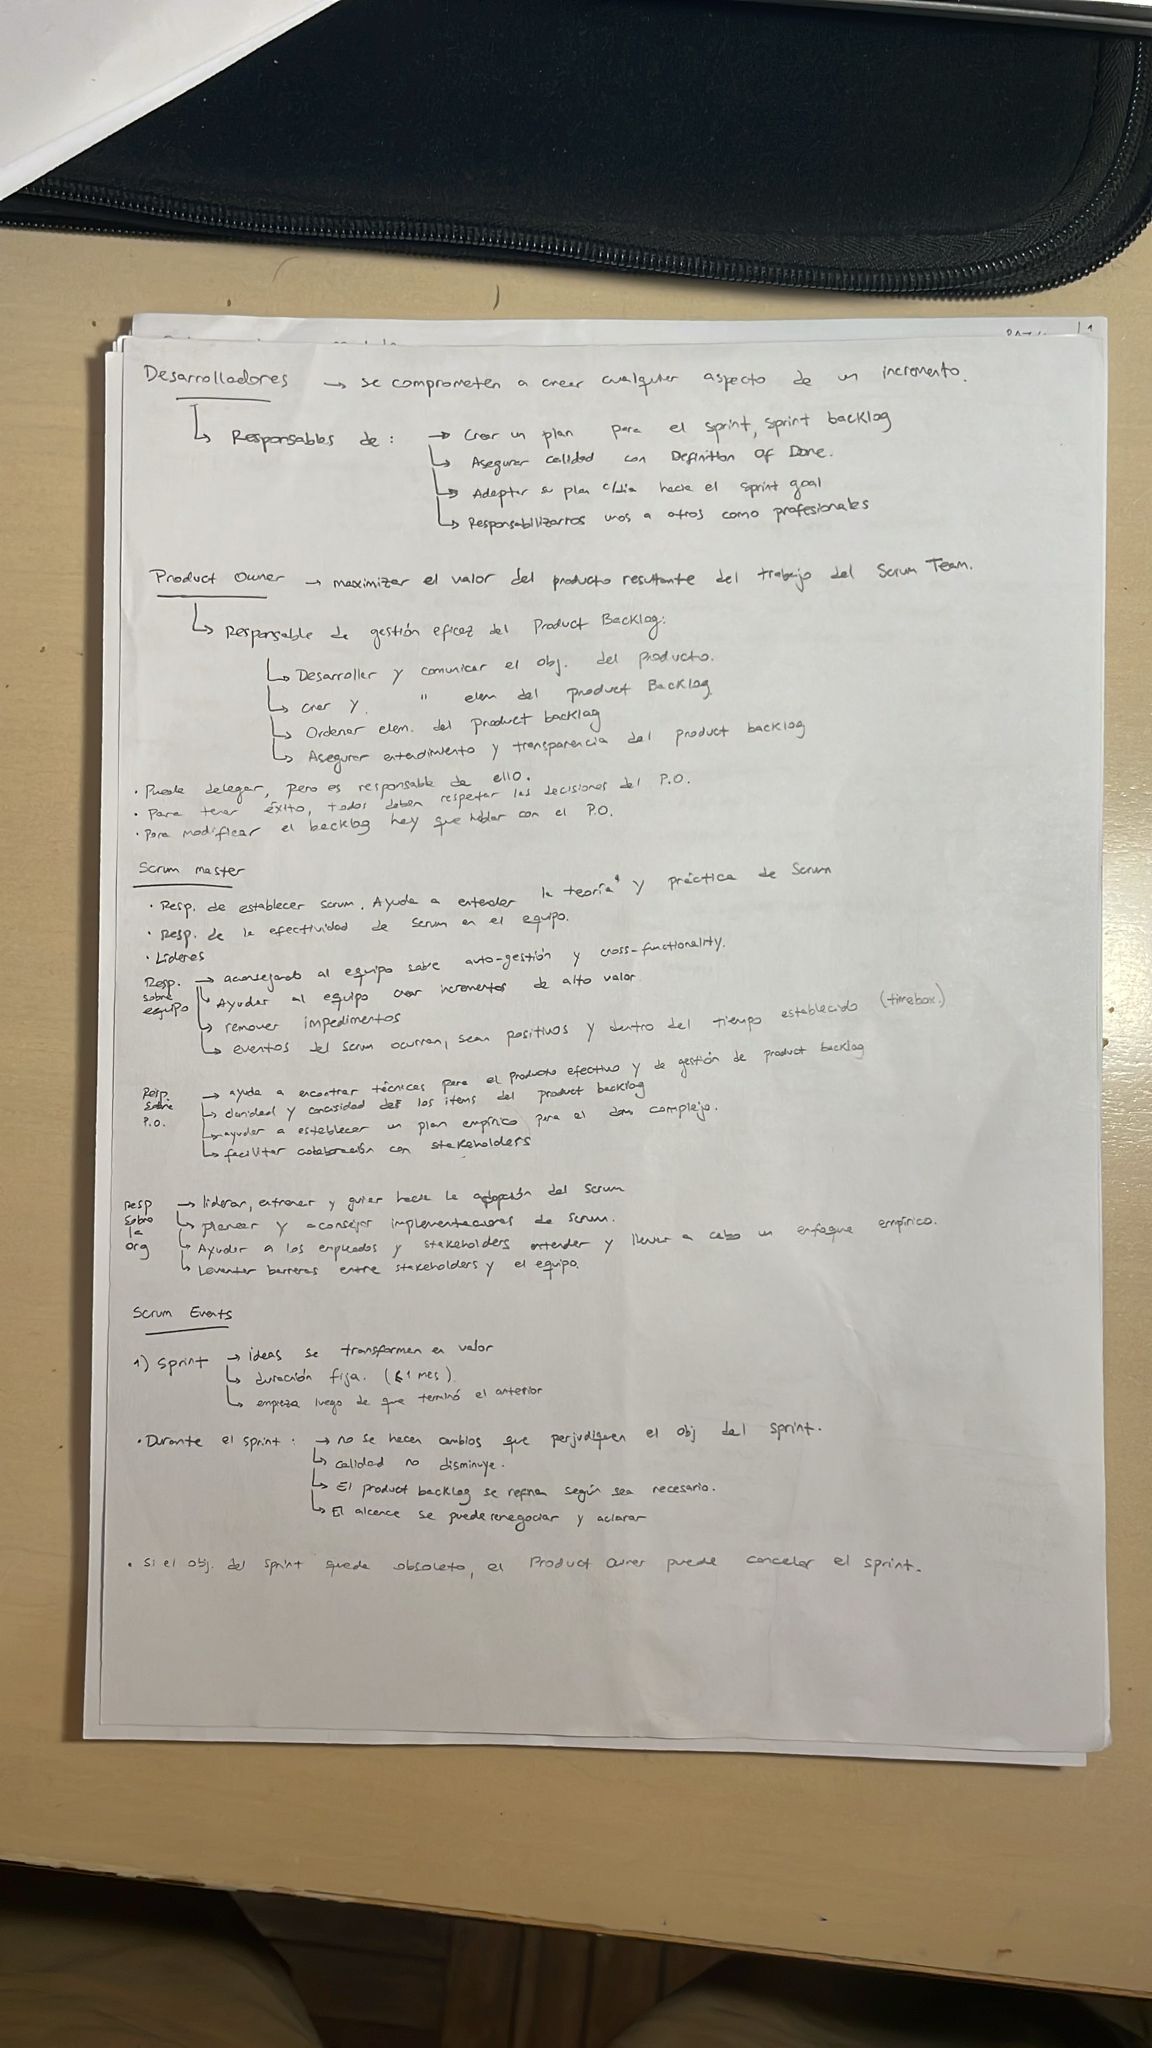 Desarrolladores → se comprometen a crear cualquier aspecto de un incremento.
↳ Responsables de : → Crear un plan para el sprint, sprint backlog
↳ Asegurar calidad con Definition Of Done.
↳ Adaptar su plan c/dia hacia el sprint goal
↳ Responsabilizarnos unos a otros como profesionales
Product Owner → maximizar el valor del producto resultante del trabajo del Scrum Team.
↳ Responsable de gestión eficaz del Product Backlog:
↳ Desarrollar y comunicar el obj. del producto.
↳ crear y. " elem del product Backlog
↳ Ordenar elem. del product backlog
↳ Asegurar entendimiento y transparencia del product backlog
· Puede delegar, pero es responsable de ello.
· Para tener éxito, todos deben respetar las decisiones del P.O.
· Para modificar el backlog hay que hablar con el P.O.
Scrum master
· Resp. de establecer scrum. Ayuda a entender la teoría y práctica de Scrum
· Resp. de la efectividad de Scrum en el equipo.
· Líderes
Resp. sobre equipo → aconsejando al equipo sobre auto-gestión y cross-functionality.
↳ Ayudar al equipo crear incrementos de alto valor
↳ remover impedimentos
↳ eventos del scrum ocurran, sean positivos y dentro del tiempo establecido (timebox.)
Resp. sobre P.O. → ayuda a encontrar técnicas para el producto efectivo y de gestión de product backlog
↳ claridad y concisidad de los items del product backlog
↳ ayudar a establecer un plan empírico para el complejo.
↳ facilitar colaboración con stakeholders
Resp sobre la org → liderar, entrenar y guiar hacia la adopción del scrum
↳ planear y aconsejar implementaciones de scrum.
↳ Ayudar a los empleados y stakeholders entender y llevar a cabo un enfoque empírico.
↳ Levantar barreras entre stakeholders y el equipo.
Scrum Events
1) Sprint → ideas se transforman en valor
↳ duración fija. (≤1 mes)
↳ empieza luego de que terminó el anterior
· Durante el sprint : → no se hacen cambios que perjudiquen el obj del sprint.
↳ calidad no disminuye.
↳ El product backlog se refina según sea necesario.
↳ El alcance se puede renegociar y aclarar
· Si el obj. del sprint queda obsoleto, el Product Owner puede cancelar el sprint.